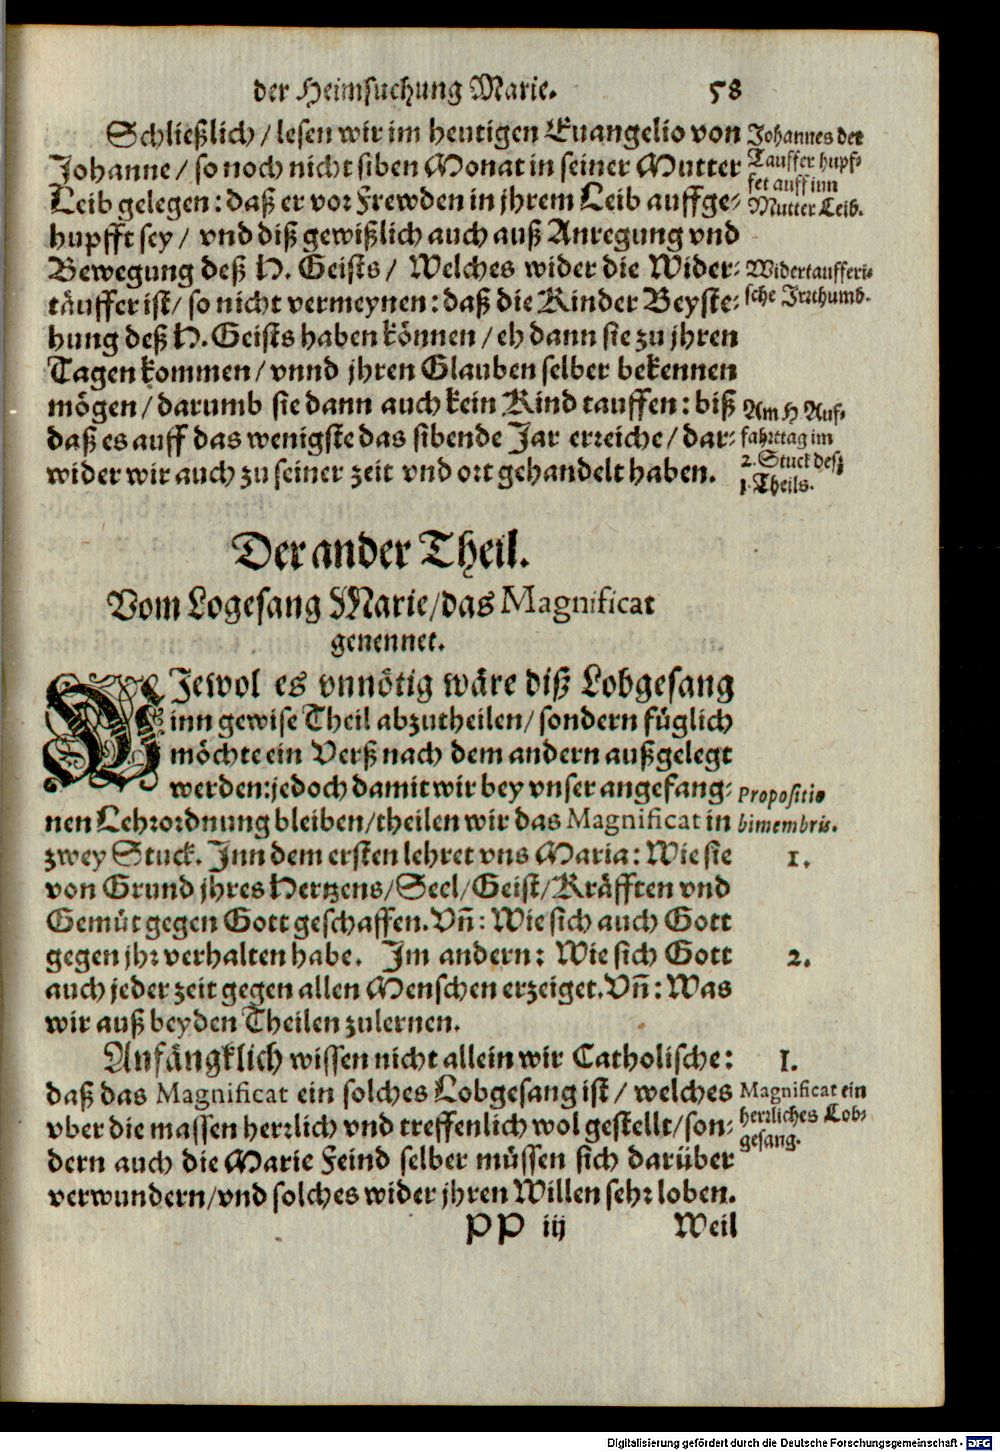 der Heimsuchung Marie. 58
Schließlich / lesen wir im heutigen Euangelio von
Johanne / so noch nicht siben Monat in seiner Mutter
Leib gelegen: daß er vor Frewden in jhrem Leib auffge-
hupfft sey / vnd diß gewißlich auch auß Anregung vnd
Bewegung deß H. Geists / Welches wider die Wider-
täuffer ist / so nicht vermeynen: daß die Kinder Beyste-
hung deß H. Geists haben können / eh dann sie zu jhren
Tagen kommen / vnnd jhren Glauben selber bekennen
mögen / darumb sie dann auch kein Kind tauffen: biß
daß es auff das wenigste das sibende Jar erreiche / dar-
wider wir auch zu seiner zeit vnd ort gehandelt haben.
Johannes der
Tauffer hupf-
fet auff inn
Mutter Leib.
Widertaufferi-
sche Irrthumb.
Am H Auf-
fahrttag im
2. Stuck deß
1. Theils.
Der ander Theil.
Vom Logesang Marie / das Magnificat
genennet.
WIewol es vnnötig wäre diß Lobgesang
inn gewise Theil abzutheilen / sondern füglich
möchte ein Verß nach dem andern außgelegt
werden: jedoch damit wir bey vnser angefang-
nen Lehrordnung bleiben / theilen wir das Magnificat in
zwey Stuck. Inn dem ersten lehret vns Maria: Wie sie
von Grund jhres Hertzens / Seel / Geist / Kräfften vnd
Gemüt gegen Gott geschaffen. Vñ: Wie sich auch Gott
gegen jhr verhalten habe. Im andern: Wie sich Gott
auch jeder zeit gegen allen Menschen erzeiget. Vñ: Was
wir auß beyden Theilen zulernen.
Propositio
bimembris.
1.
2.
Anfängklich wissen nicht allein wir Catholische:
daß das Magnificat ein solches Lobgesang ist / welches
vber die massen herrlich vnd treffenlich wol gestellt / son-
dern auch die Marie Feind selber müssen sich darüber
verwundern / vnd solches wider jhren Willen sehr loben.
I.
Magnificat ein
herrliches Lob-
gesang.
PP iij Weil
Digitalisierung gefördert durch die Deutsche Forschungsgemeinschaft - DFG